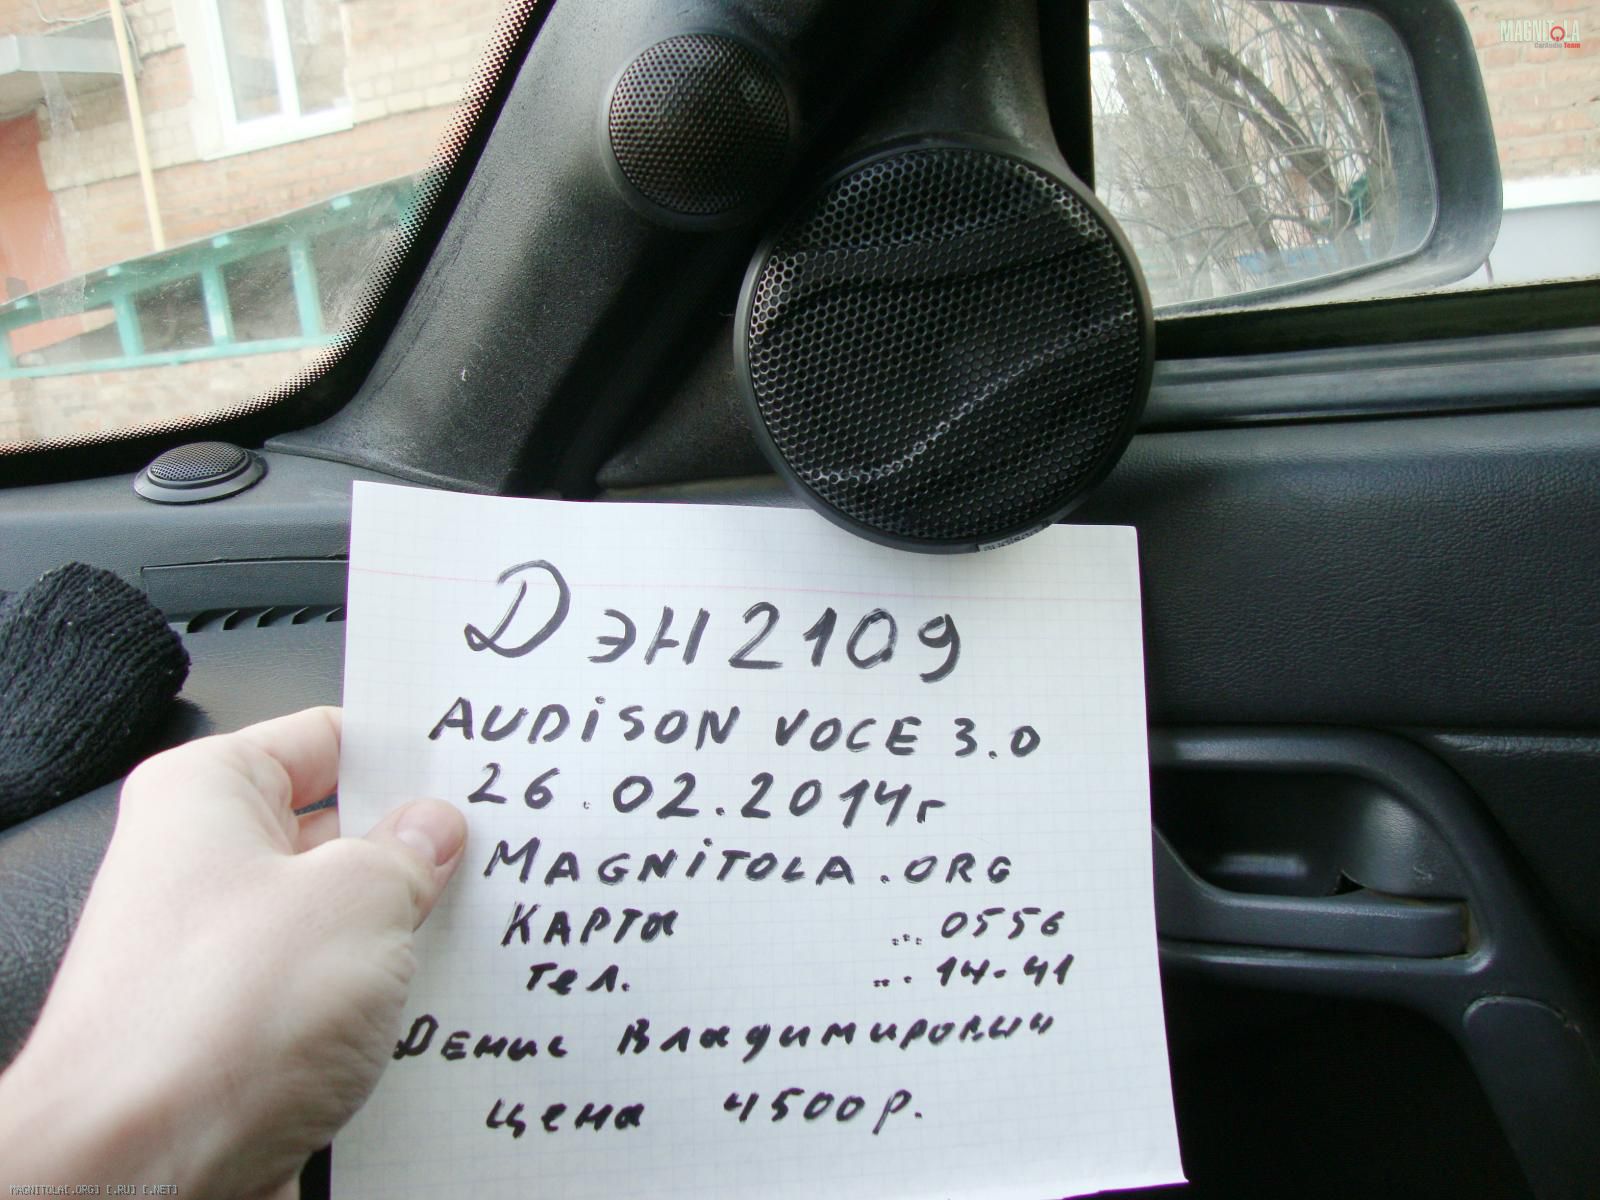 MAGNITOLA
CarAudio Team
Дэн2109
AUDiSON VOCE 3.0
26.02.2014г
MAGNiTOLA.ORG
КАРТа ... 0556
тел. ... 14-41
Денис Владимирович
цена 4500р.
MAGNITOLA[.ORG] [.RU] [.NET]